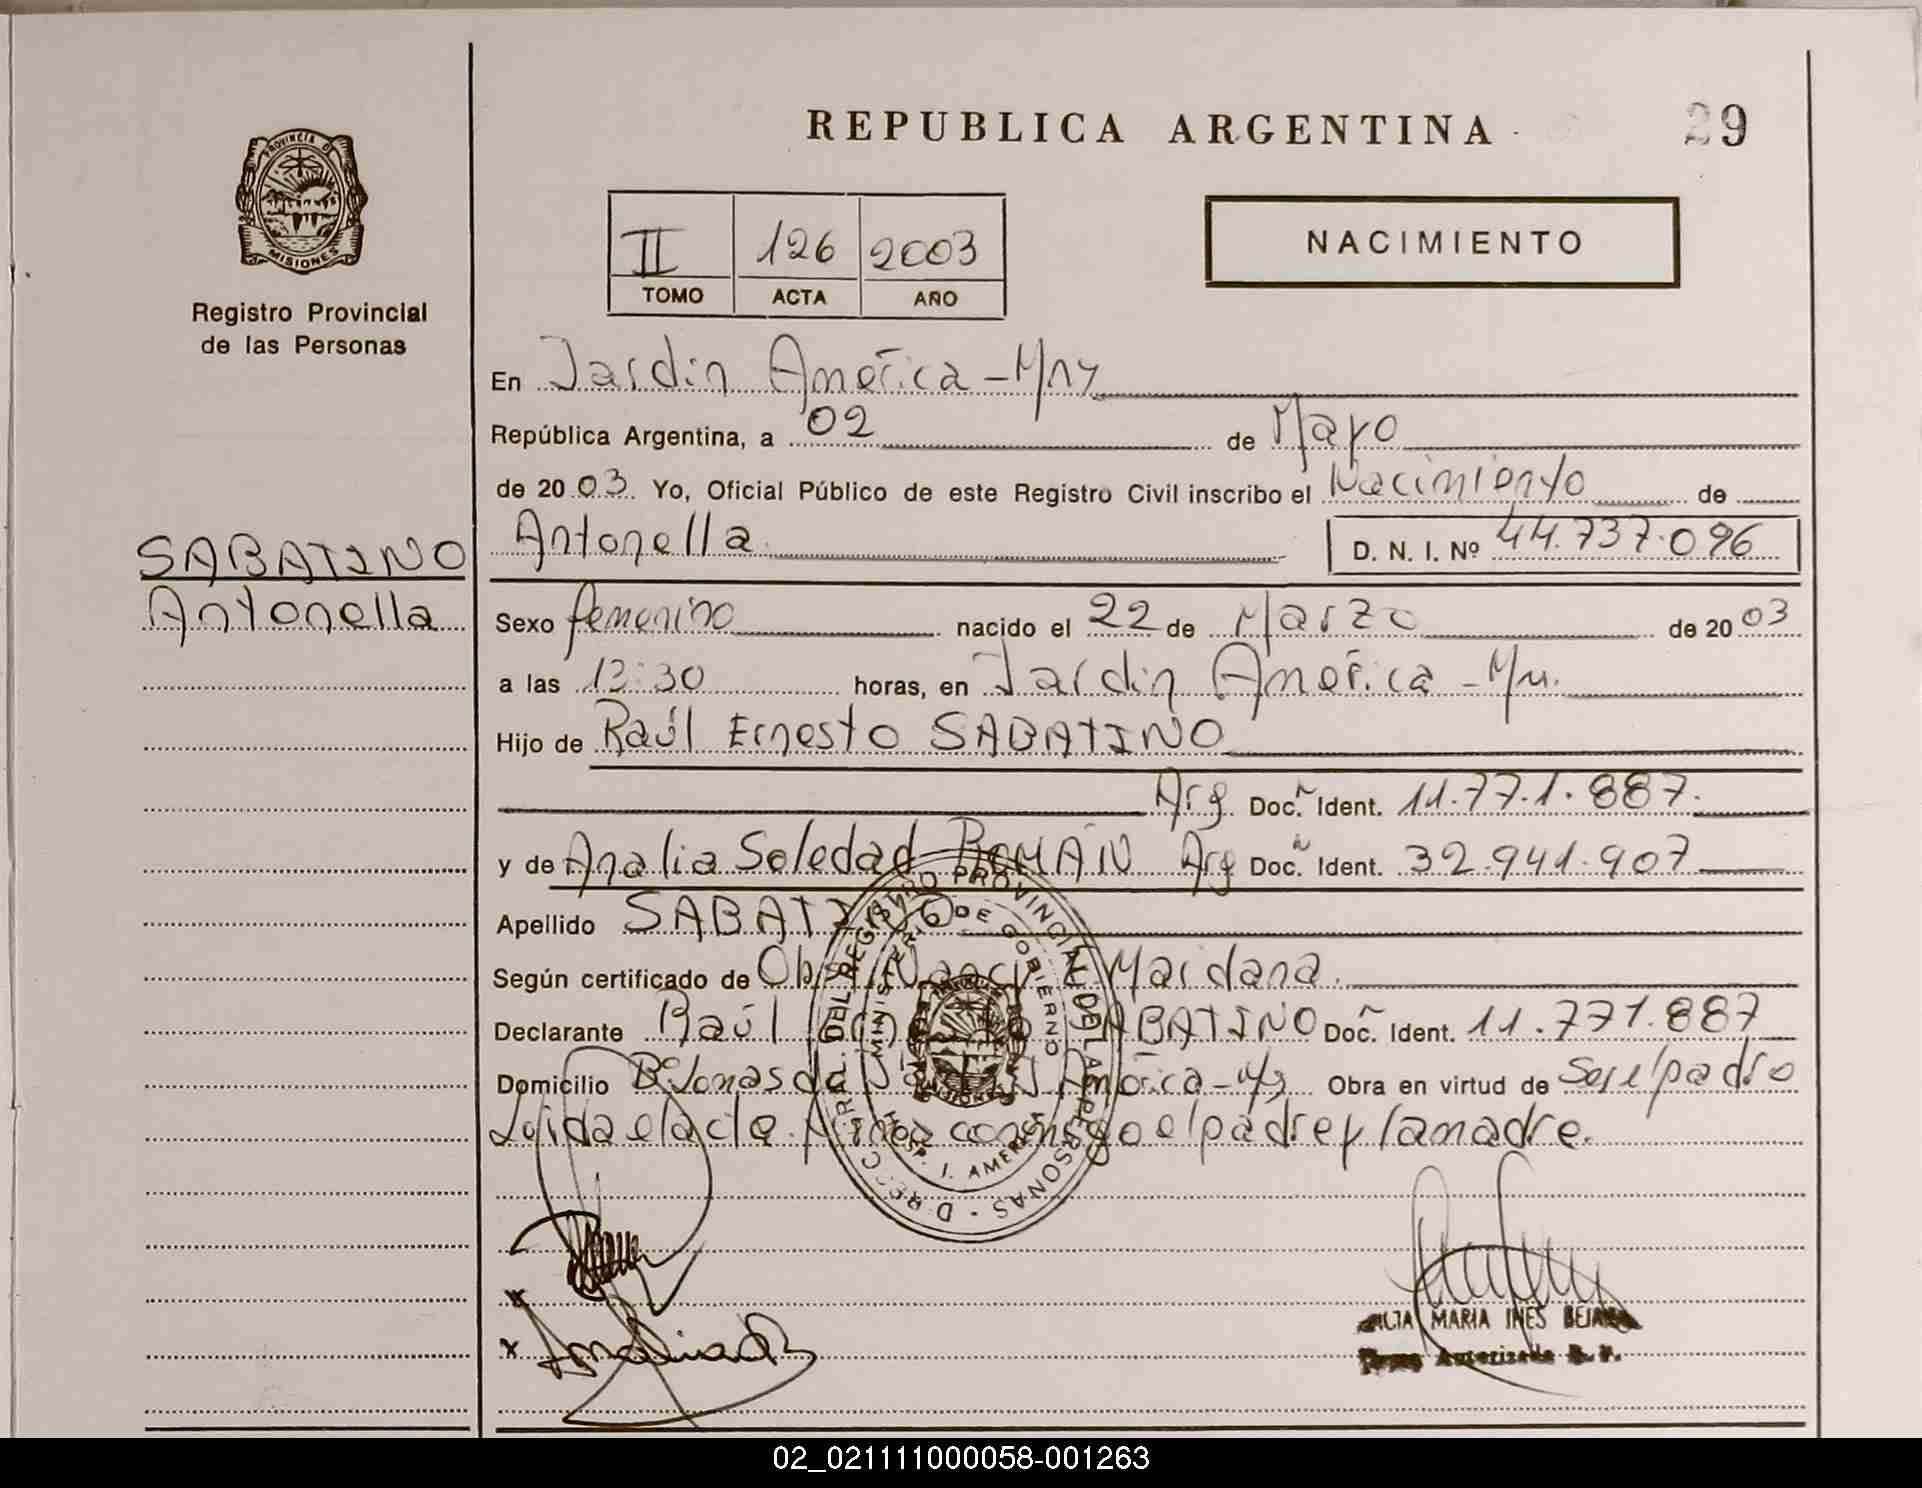 REPUBLICA ARGENTINA
29
PROVINCIA DE
MISIONES
Registro Provincial
de las Personas
II 126 2003
TOMO ACTA AÑO
NACIMIENTO
En Jardin América - Mns
República Argentina, a 02 de Mayo
de 2003. Yo, Oficial Público de este Registro Civil inscribo el Nacimiento de
Antonella D. N. I. Nº 44.737.096
SABATINO
Antonella
Sexo femenino nacido el 22 de Marzo de 2003
a las 13:30 horas, en Jardin América - Mn.
Hijo de Raúl Ernesto SABATINO
Arg. Doc. Ident. 11.771.887.
y de Analia Soledad ROMÁN Arg Doc. Ident. 32.941.907
Apellido SABATINO
Según certificado de Obst. Nancy Maidana.
Declarante Raúl SABATINO Doc. Ident. 11.771.887
Domicilio América - Obra en virtud de Ser el padre
Leida el acta. Firman conmigo el padre y la madre.
DIRECC. GRAL. DEL REGISTRO PROVINCIAL DE LAS PERSONAS
MINISTERIO DE GOBIERNO
MISIONES
HOSP. J. AMERICA
MARIA INES
Autorizada R. P.
02_021111000058-001263